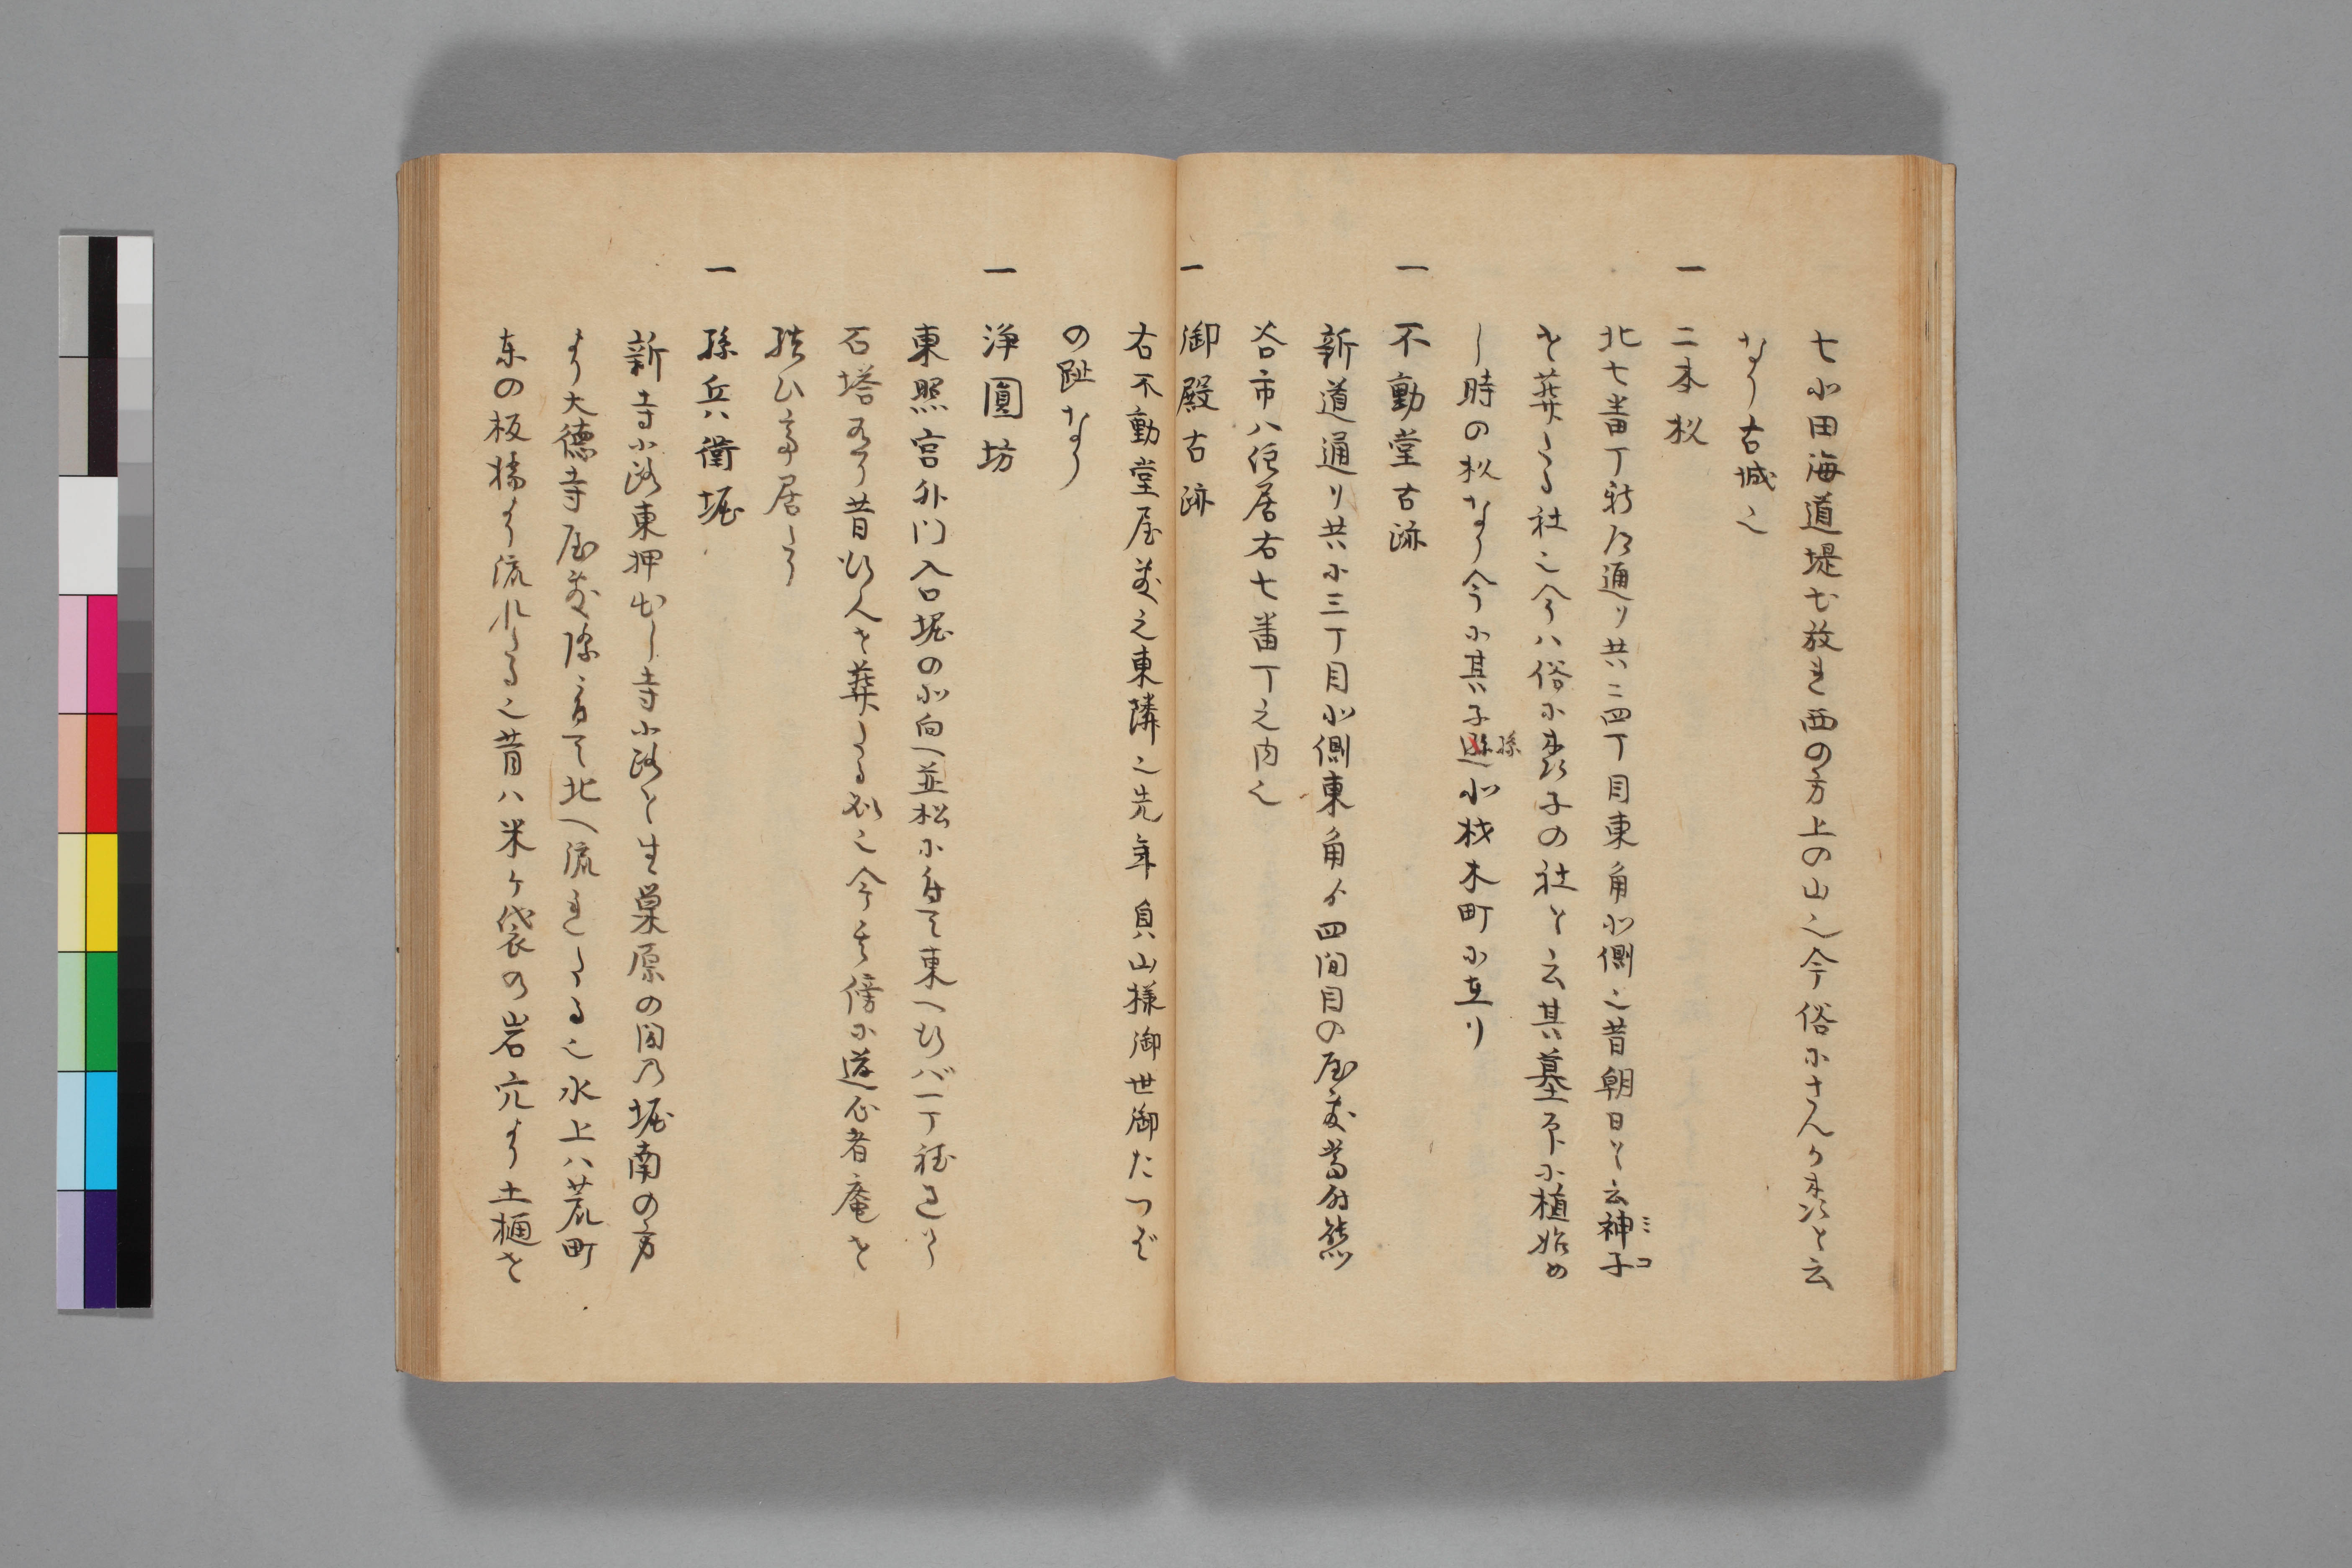 七北田海道堤む放れ西の方上の山也今俗にさんか森と云
なり古城也
一 二本杉
北七番丁新左通り共ニ四丁目東角北側也昔朝日と云神子ミコ
を葬たる社也今ハ俗に森子の社と云其墓印に植始め
し時の杉なり今に其子孫孫北材木町に在り
一 不動堂古跡
新道通り共に三丁目北側東角ゟ四間目の屋敷当時熊
谷市八住居右七番丁之内也
一 御殿古跡
右不動堂屋敷之東隣也先年貞山様御世御たつぞ
の趾なり
一 浄圓坊
東照宮外門入口堀の北向へ並松に付て東へ行バ一丁程さり
石塔有り昔此人を葬たる処也今其傍に道心者庵を
結ひ寺居たり
一 孫兵衛堀
新寺小路東押出し寺小路と生巣原の間乃堀南の方
より大徳寺屋敷際ゟ有て北へ流れたる也水上ハ荒町
東の板橋より流れたる也昔ハ米ケ袋の岩穴より土樋を